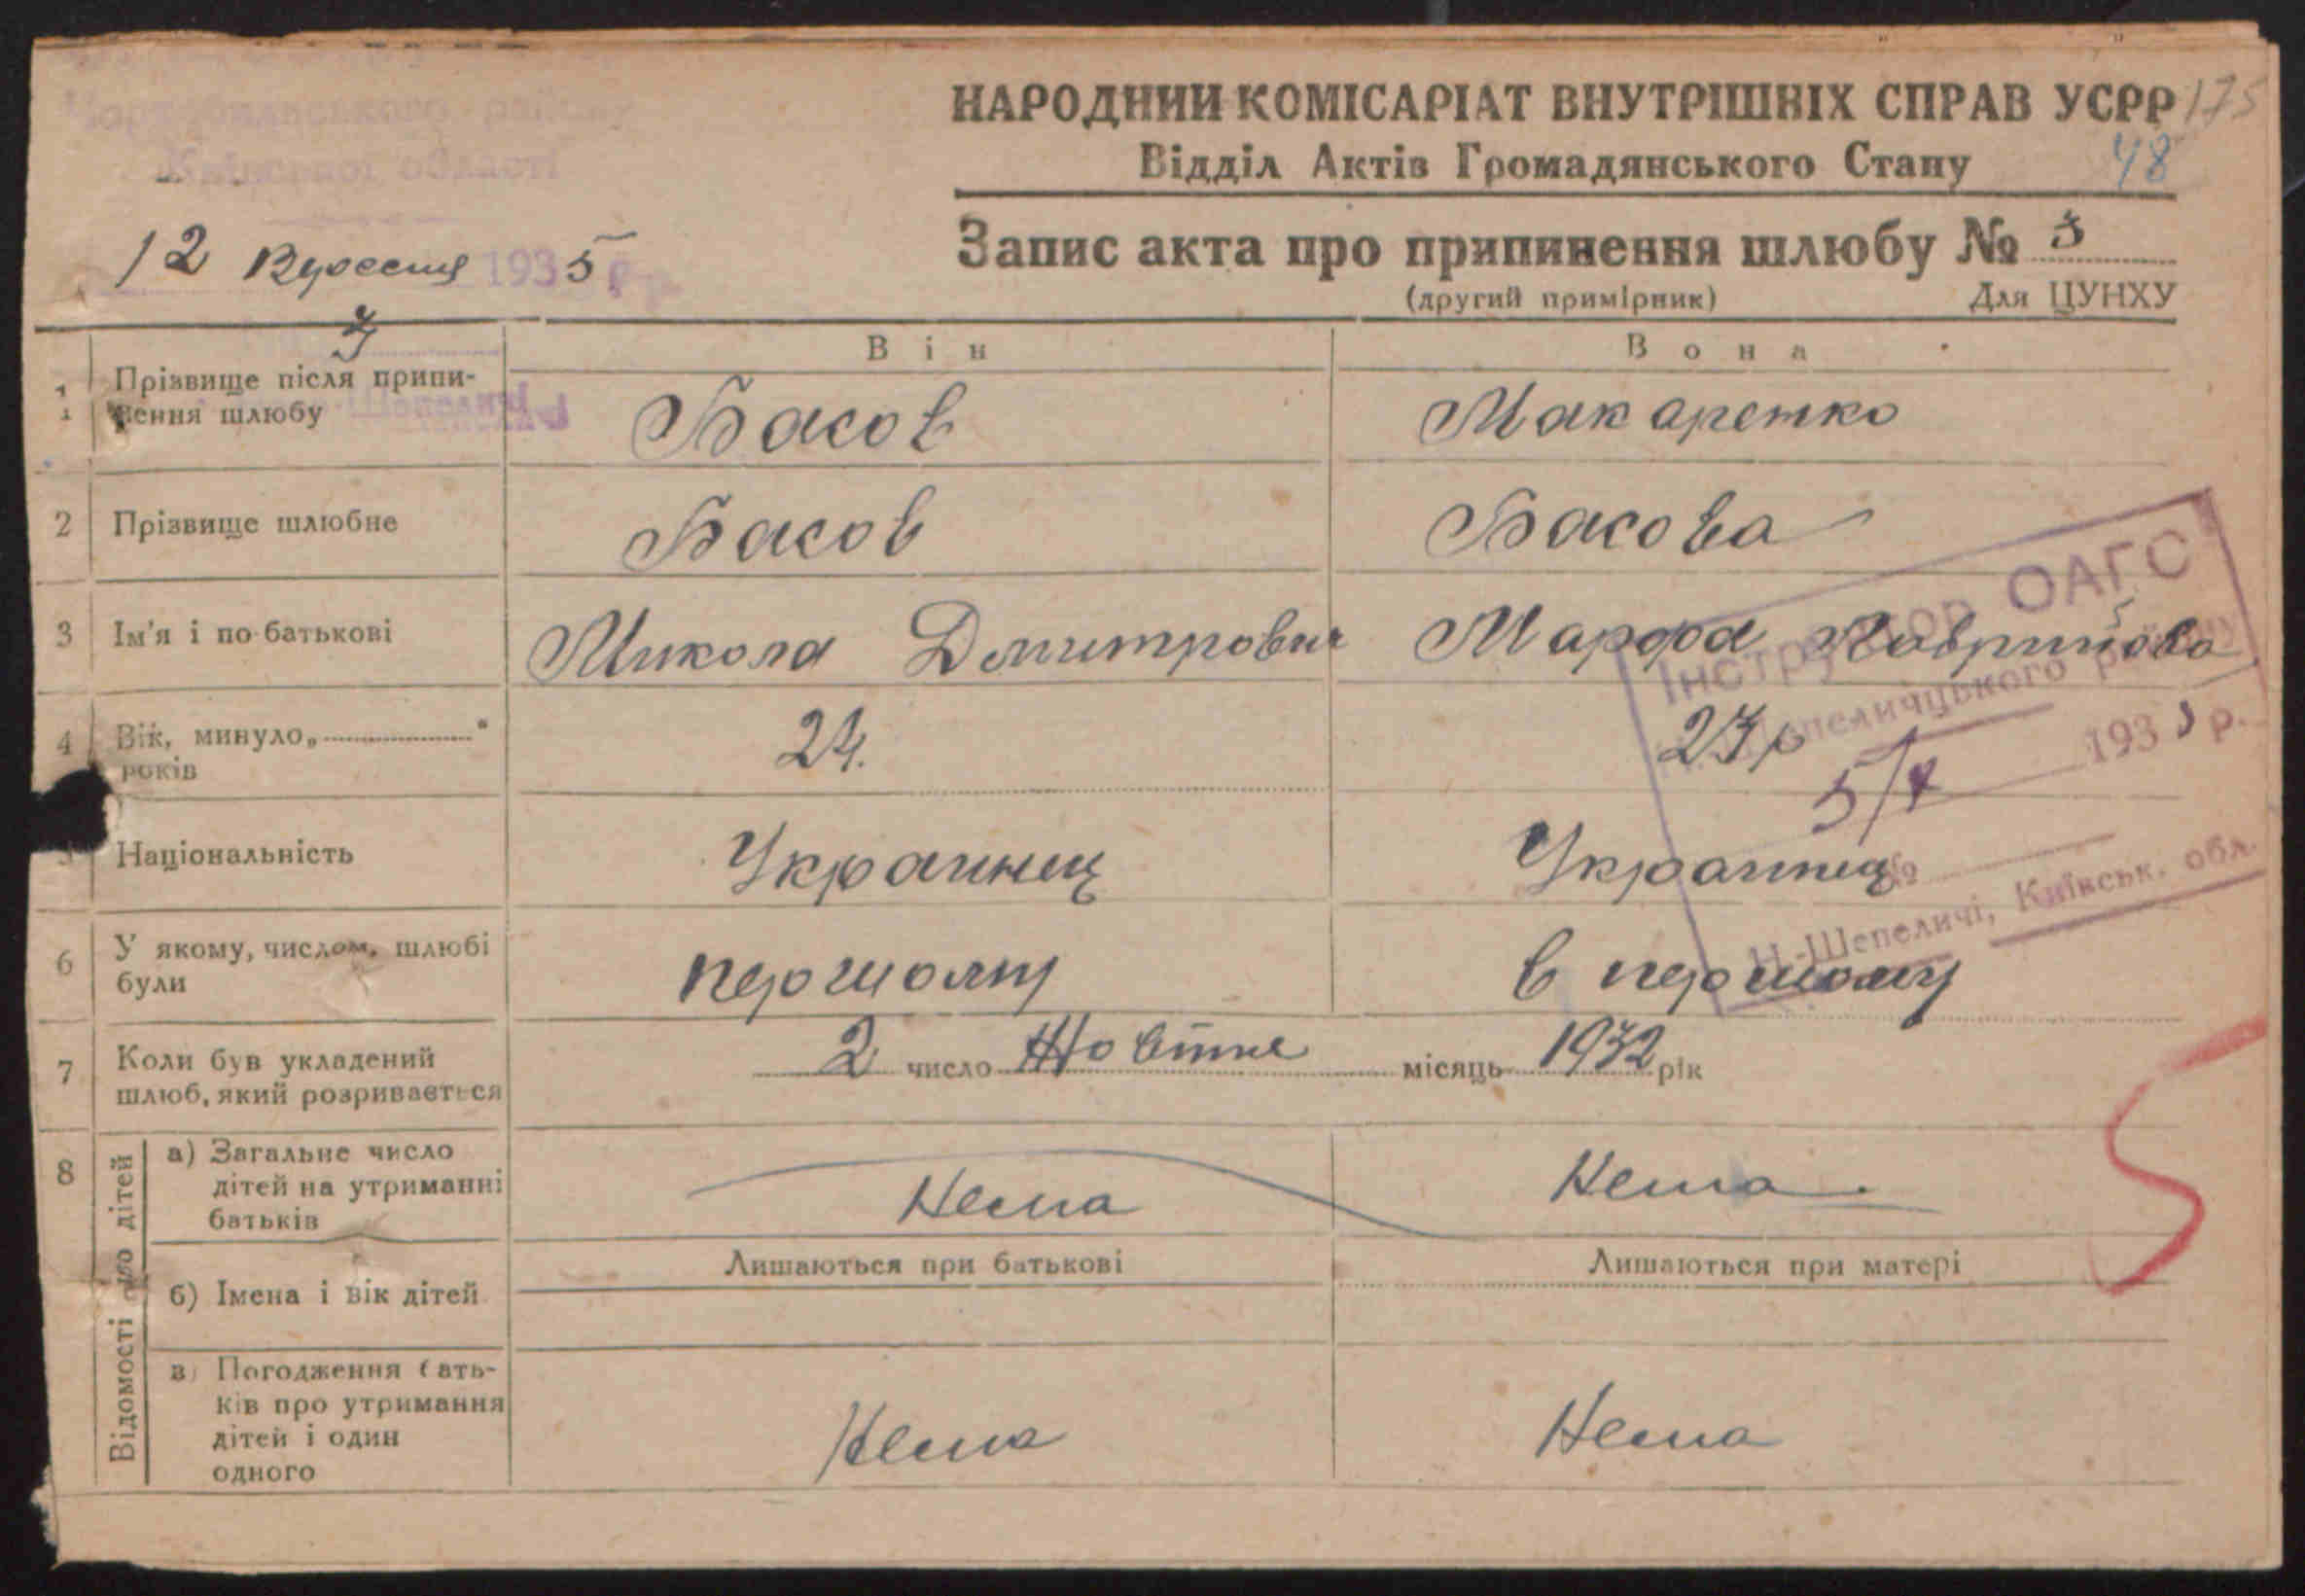 Чорнобильського району
Київської області
12 Вересня 1935 р.
НАРОДНИЙ КОМІСАРІАТ ВНУТРІШНІХ СПРАВ УСРР 175
Відділ Актів Громадянського Стану 48
Запис акта про припинення шлюбу № 3
(другий примірник) Для ЦУНХУ
3
Він Вона
1 Прізвище після припинення шлюбу Басов Макаренко
2 Прізвище шлюбне Басов Басова
3 Ім'я і по-батькові Микола Дмитрович Марфа
4 Вік, минуло „ “ років 24. 23р
Національність Украинец Украинец
6 У якому, числом, шлюбі були першому в першому
7 Коли був укладений шлюб, який розривається 2 число Жовтне місяць 1932 рік
8 Відомості про дітей
а) Загальне число дітей на утриманні батьків Нема Нема.
Лишаються при батькові Лишаються при матері
б) Імена і вік дітей
в) Погодження батьків про утримання дітей і один одного Нема Нема
Інструктор ОАГС
193 р.
№
Н-Шепеличі, Київськ. обл.
5